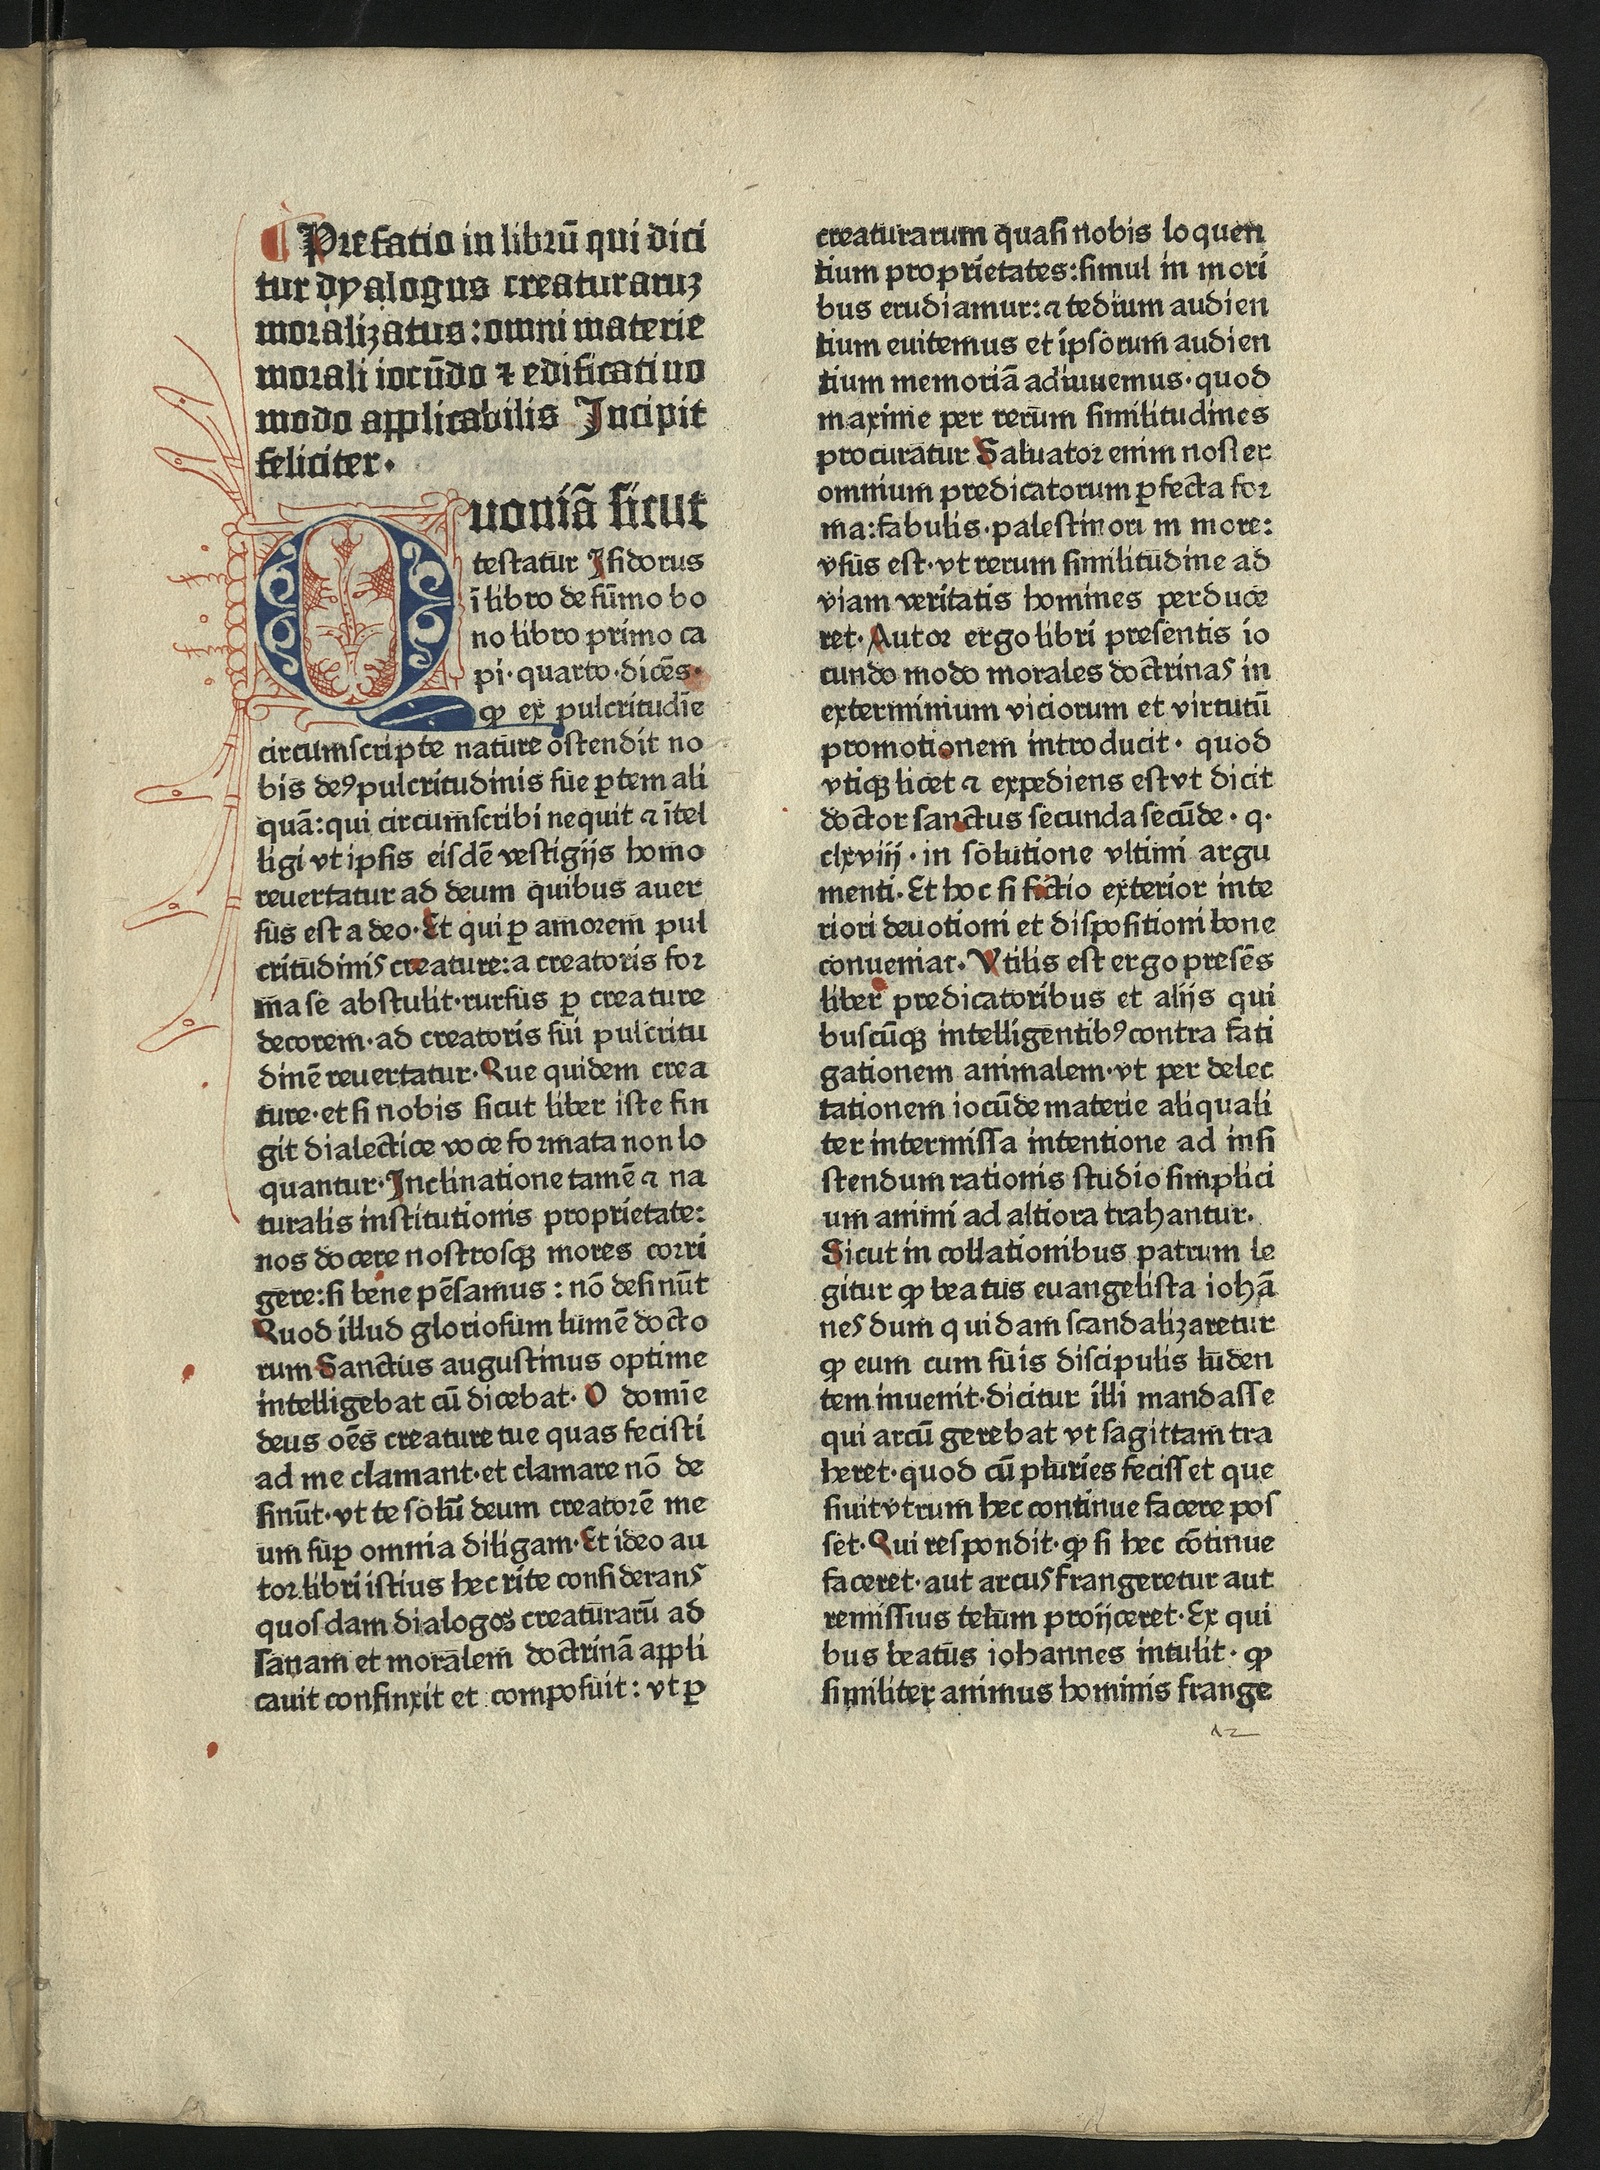 ¶ Prefatio in librū qui dici
tur dyalogus creaturaruꝫ
moralizatus: omni materie
morali iocūdo ⁊ edificatiuo
modo applicabilis Incipit
feliciter·
Quoniā sicut
testatur Isidorus
ī libro de sūmo bo
no libro primo ca
pi· quarto· dicēs·
ꝙ ex pulcritudīe
circumscripte nature ostendit no
bis deꝰ pulcritudinis sue ꝑtem ali
quā: qui circumscribi nequit ⁊ ītel
ligi vt ipsis eisdē vestigijs homo
reuertatur ad deum quibus auer
sus est a deo· Et qui ꝑ amorem pul
critudinis creature: a creatoris for
ma se abstulit· rursus ꝑ creature
decorem· ad creatoris sui pulcritu
dinē reuertatur· Que quidem crea
ture· et si nobis sicut liber iste fin
git dialectice voce formata non lo
quantur· Inclinatione tamē ⁊ na
turalis institutionis proprietate:
nos docere nostrosqꝫ mores corri
gere: si bene pēsamus: nō desinūt
Quod illud gloriosum lumē docto
rum Sanctus augustinus optime
intelligebat cū dicebat· O domīe
deus oēs creature tue quas fecisti
ad me clamant· et clamare nō de
sinūt· vt te solū deum creatorē me
um suꝑ omnia diligam· Et ideo au
tor libri istius hec rite considerans
quosdam dialogos creaturarū ad
sanam et moralem doctrinā appli
cauit confinxit et composuit: vt ꝑ
creaturarum quasi nobis loquen
tium proprietates: simul in mori
bus erudiamur: ⁊ tedium audien
tium euitemus et ipsorum audien
tium memoriā adiuuemus· quod
maxime per rerum similitudines
procuratur Saluator enim noster
omnium predicatorum ꝑfecta for
ma: fabulis· palestinorum more:
vsus est· vt rerum similitudine ad
viam veritatis homines perduce
ret· Autor ergo libri presentis io
cundo modo morales doctrinas in
exterminium viciorum et virtutū
promotionem introducit· quod
vtiqꝫ licet ⁊ expediens est vt dicit
doctor sanctus secunda secūde· q·
clxviij· in solutione vltimi argu
menti· Et hoc si fictio exterior inte
riori deuotioni et dispositioni bone
conueniat· Vtilis est ergo presēs
liber predicatoribus et alijs qui
buscūqꝫ intelligentibꝰ contra fati
gationem animalem· vt per delec
tationem iocūde materie aliquali
ter intermissa intentione ad insi
stendum rationis studio simplici
um animi ad altiora trahantur·
Sicut in collationibus patrum le
gitur ꝙ beatus euangelista iohā
nes dum quidam scandalizaretur
ꝙ eum cum suis discipulis luden
tem inuenit· dicitur illi mandasse
qui arcū gerebat vt sagittam tra
heret· quod cū pluries fecisset que
siuit vtrum hec continue facere pos
set· Qui respondit· ꝙ si hec cōtinue
faceret· aut arcus frangeretur aut
remissius telum proijceret· Ex qui
bus beatus iohannes intulit· ꝙ
similiter animus hominis frange